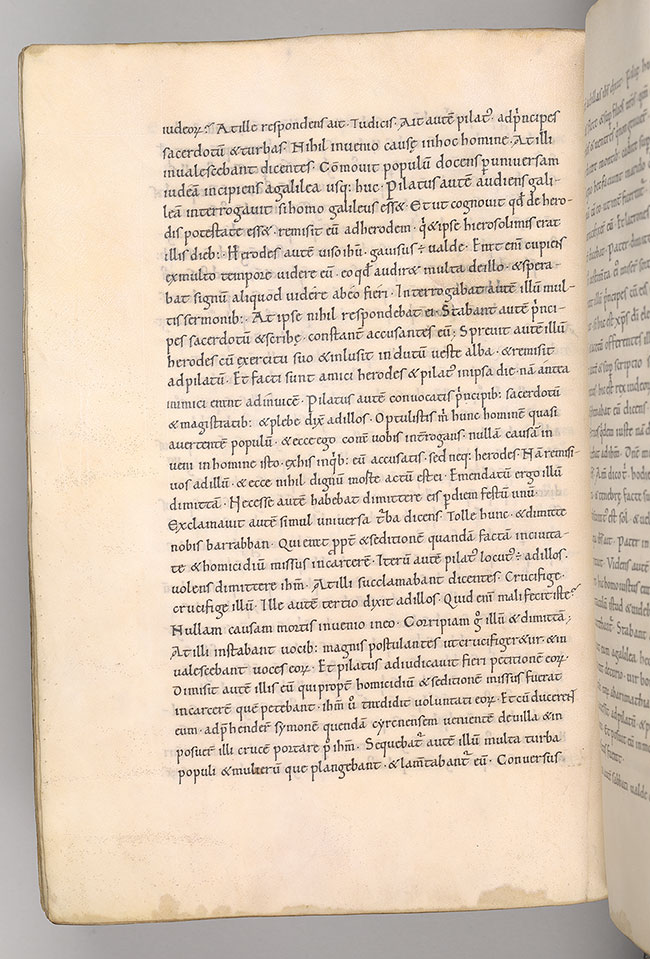 iudeoꝝ? At ille respondens ait. Tu dicis. Ait autē pilatꝰ ad pͥncipes
sacerdotū & turbas. Nihil invenio causę in hoc homine. At illi
invalescebant dicentes. Cōmovit populū docens ꝑ universam
iudeā incipiens a galilea usq; huc. Pilatus autē audiens gali-
leā interrogavit si homo galileus ess&. Et ut cognovit qd̄ de hero-
dis potestate ess&. remisit eū ad herodem. q̇ & ipse hierosolimis erat
illis dieb:. Herodes autē viso ihū. gavisus ÷ valde. Erat eni̅ cupiens
ex multo tempore videre eū. eo qd̄ audir& multa de illo. & spera
bat signū aliquod videre ab eo fieri. Interrogabat autē illū mul-
tis sermonib:. At ipse nihil respondebat ei. Stabant autē pͥnci-
pes sacerdotū & scribę. constant̄ accusantes eū. Sprevit autē illū
herodes cū exercitu suo & inlusit indutū veste alba. & remisit
ad pilatū. Et facti sunt amici herodes & pilatꝰ in ipsa die. nā antea
inimici erant ad invicē. Pilatus autē convocatis pͥncipib: sacerdotū
& magistratib: & plebe dix̄ ad illos. Optulistis m̄ hunc hominē quasi
avertentē populū. & ecce ego corā vobis int̄rogans. nullā causā in
veni in homine isto. ex his in qͥb: eū accusatis. sed neq: herodes. Nā remisi-
vos ad illū. & ecce nihil dignū morte actū est ei. Emendatū ergo illū
dimittā. Necesse autē habebat dimittere eis ꝑ diem festū unū.
Exclamavit autē simul universa tᵘrba dicens. Tolle hunc. & dimitte
nobis barrabban. Qui erat ꝓpt̄ & seditionē quandā factā in civita-
te & homicidiū missus in carcerē. Iterū autē pilatꝰ locutꝰ ÷ ad illos.
volens dimittere ihm̄. At illi succlamabant dicentes. Crucifige.
crucifige illū. Ille autē tertio dixit ad illos. Quid eni̅ mali fecit iste?
Nullam causam mortis invenio in eo. Corripiam gͦ illū & dimittā.
At illi instabant vocib: magnis postulantes ut crucifiger&ur. & in
valescebant voces eoꝝ. Et pilatus adiudicavit fieri petitionē eoꝝ.
Dimisit autē illis eū qui propt̄ homicidiū & seditionē missus fuerat
in carcerē quē petebant. ihm̄ vͦ tradidit voluntati eoꝝ. Et cū ducerent
eum. adp̄hender̄ symonē quendā cyrenensem venientē de villa. & in
posuer̄ illi crucē portare p̄ ihm̄. Sequebat̄ autē illū multa turba
populi & mulierū que plangebant. & lam̄tabant̄ eū. Conversus